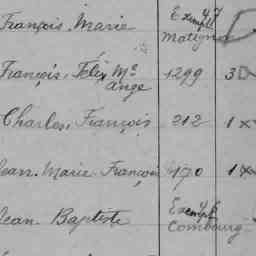 François Marie Exempté 47
Matignon
François, Félix Mie 1299 3
Ange
Charles, François 212 1 x
Jean Marie François 470 1 x
Jean Baptiste Exempté
Combourg